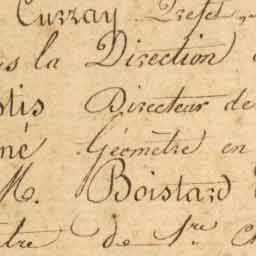 Curray Préfet
la Direction
Directeur de
Géomètre en
M. Boistard
de 1.re